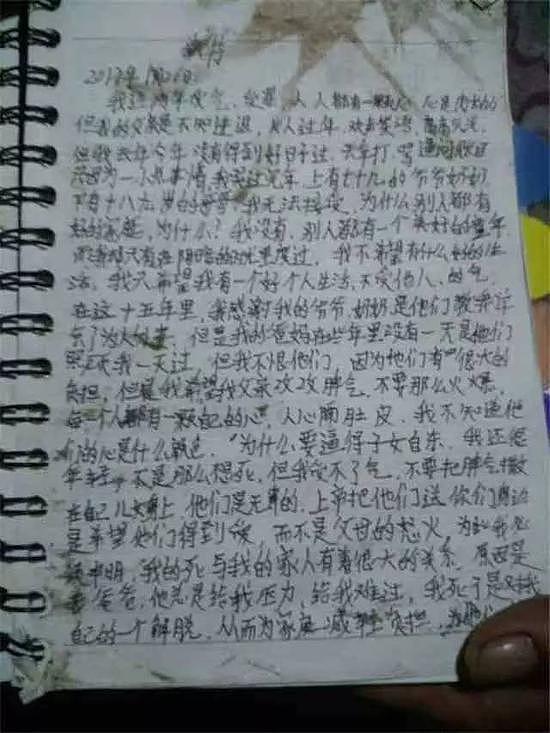 2017年1月21日
我这两年受气、受罪、人人都有一颗 心,心是肉长的
但我的父亲是不知进退,别人过年,欢声笑语,
但我去年今年,没有得到好日子过,天天打,骂
只因为一点点事情,我 上有七十几的爷爷奶奶
下有十八九岁的 我无法接受,为什么别人都有
好的家庭,为什么?我没有,别人都有一个美好的童年
而我却只有在阴暗的 里度过,我不希望有什么好的生
活,我只希望我有一个好个人生活,不受他人的气,
在这十五年里,我感谢我的爷爷奶奶是他们教我学
会了为人处事,但是我的爸妈在些年里没有一天是他们
我一天过,但我不恨他们,因为他们有很大的
负担,但是我希望我父亲改改脾气,不要那么火爆,
每一个人都有一颗自己的心,人心隔肚皮,我不知道他
们的心是什么颜色,"为什么要逼得子女自杀,我还很
年轻,不是那么想死,但我受不了气,不要把脾气撒
在自己儿女身上,他们是无辜的,上帝把他们送你们身边
是希望他们得到爱,而不是父母的怒火,为此我
声明,我的死与我的家人有着很大的关系,原因是
我爸爸,他总是给我压力,给我难过,我死了是对我
自己的一个解脱,从而为家庭减轻负担,